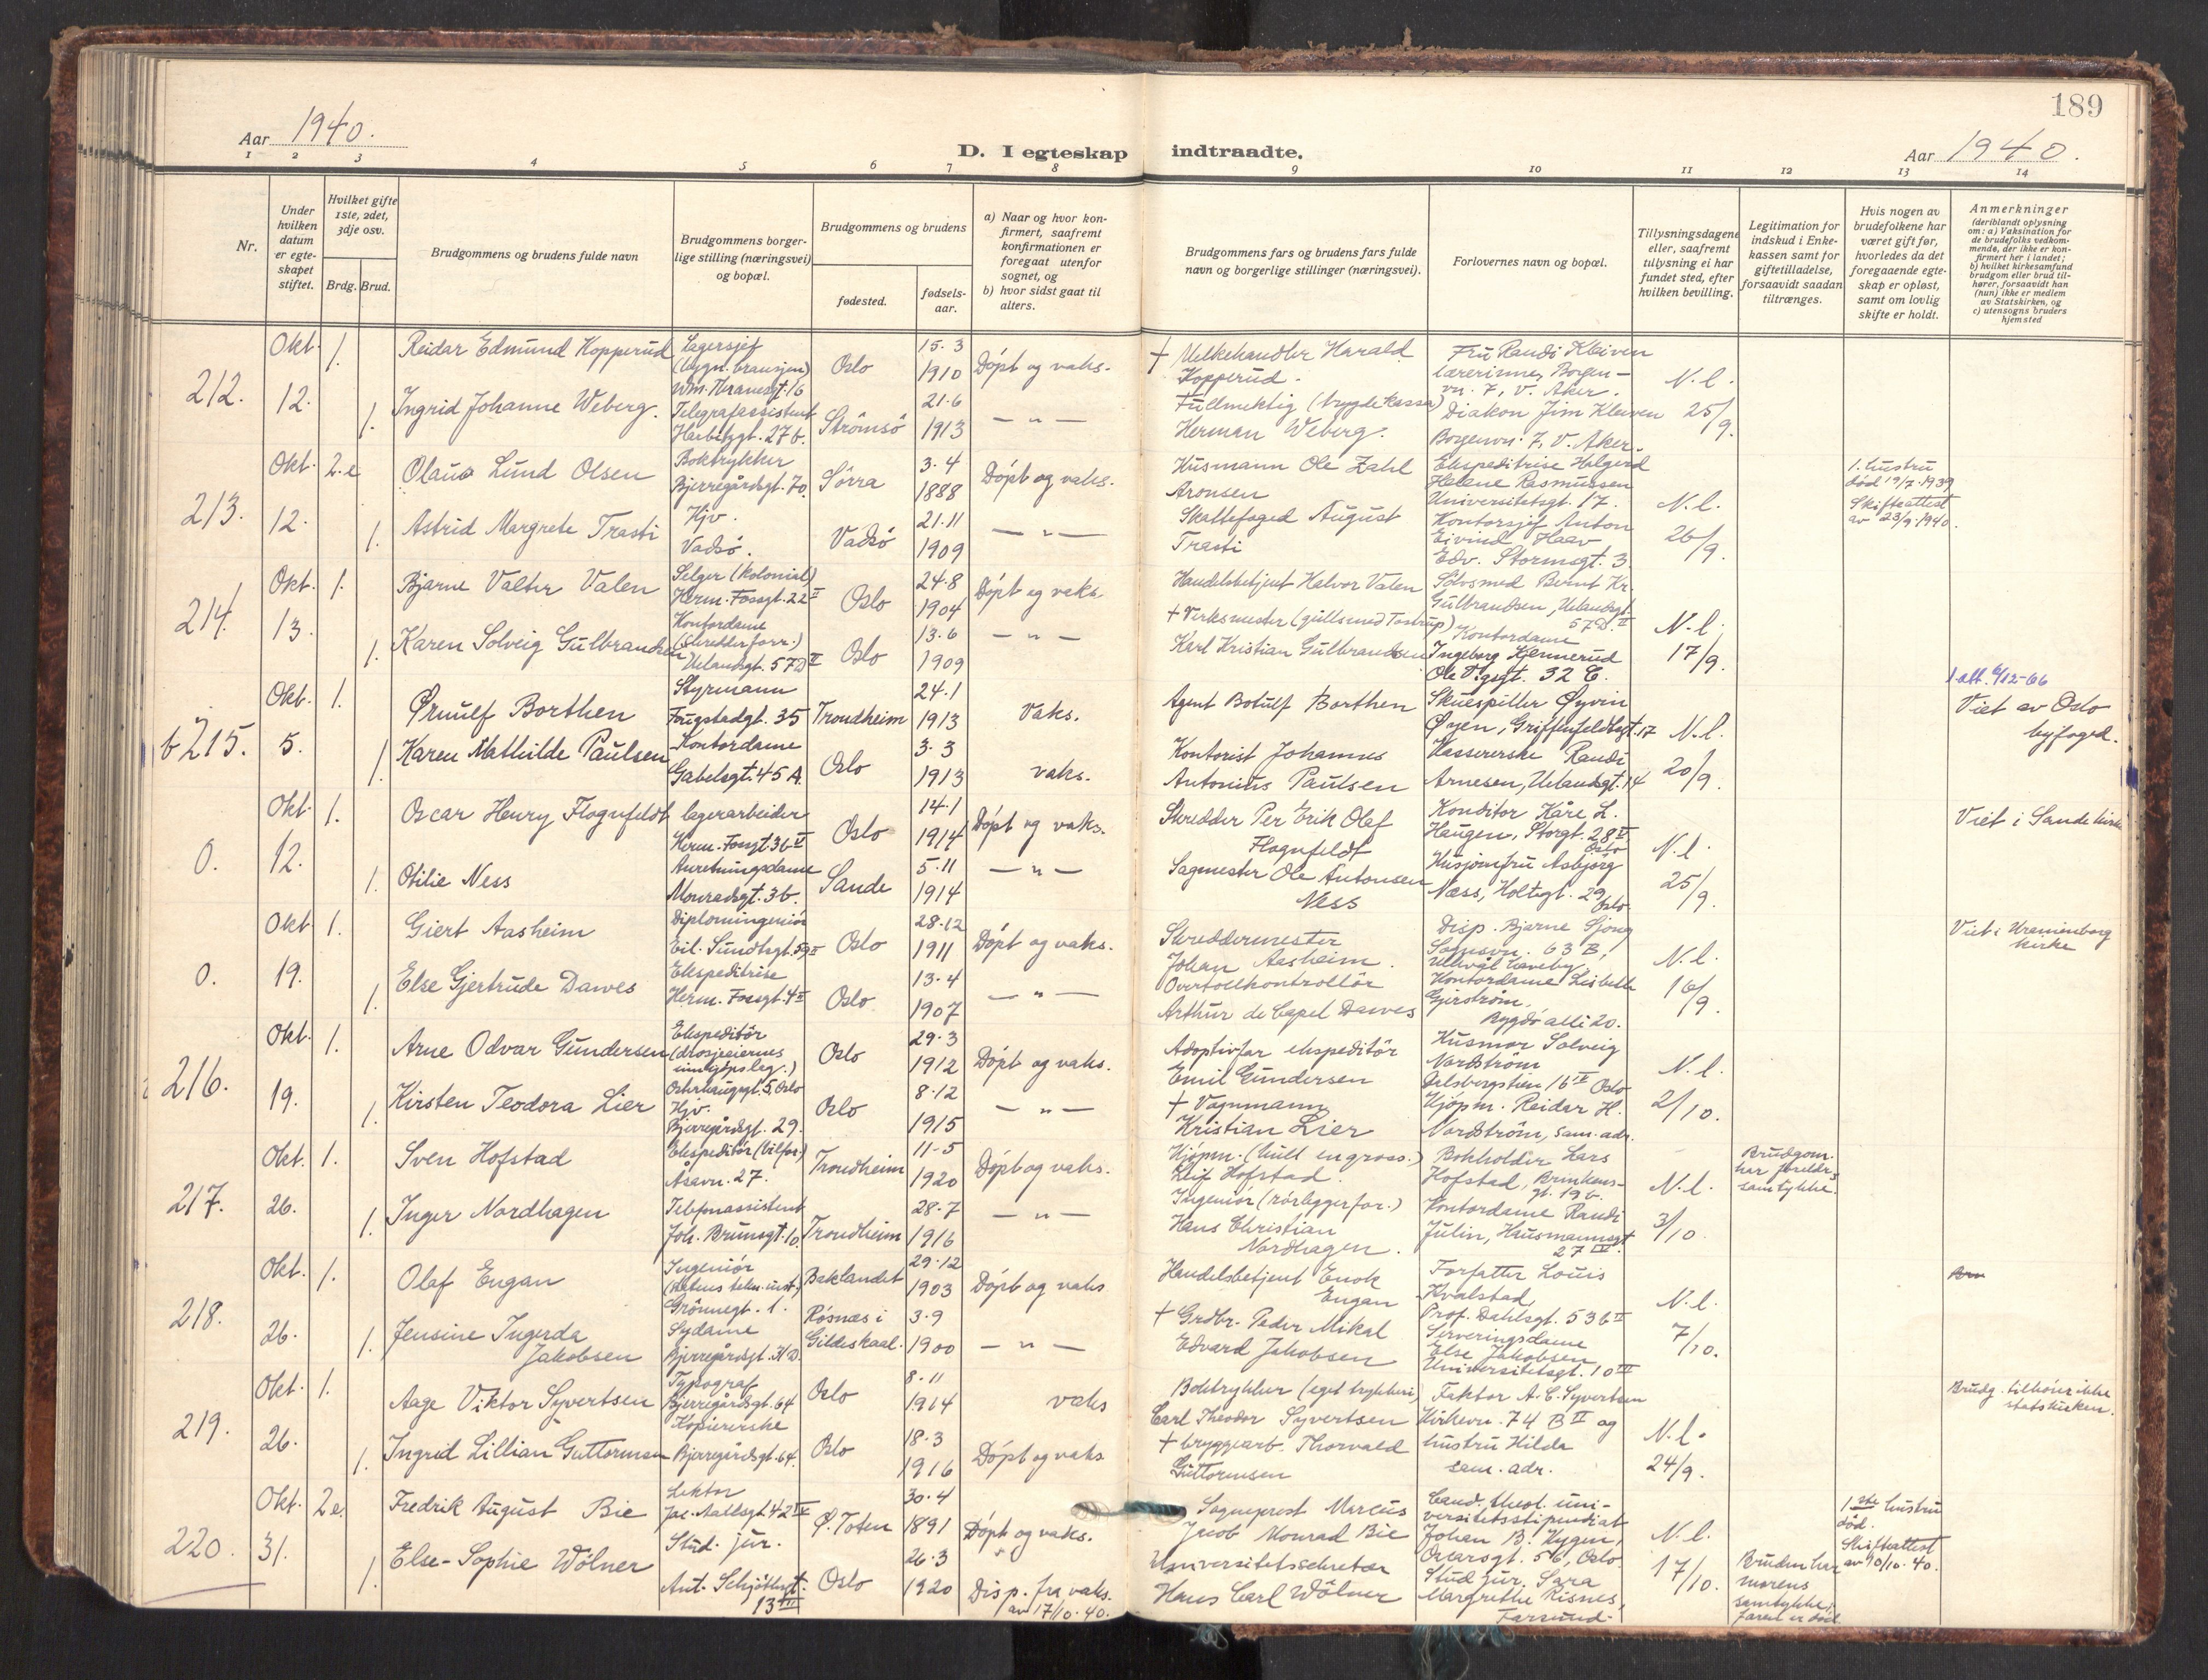 189
Aar 1940.
D. I egteskap indtraadte.
Aar 1940.
1 2 3 4 5 6 7 8 9 10 11 12 13 14
Nr.
Under hvilken datum er egteskapet stiftet.
Hvilket gifte 1ste, 2det, 3dje osv.
Brdg. Brud.
Brudgommens og brudens fulde navn
Brudgommens borgerlige stilling (næringsvei) og bopæl.
Brudgommens og brudens
fødested.
fødselsaar.
a) Naar og hvor konfirmert, saafremt konfirmationen er foregaat utenfor sognet, og
b) hvor sidst gaat til alters.
Brudgommens fars og brudens fars fulde navn og borgerlige stillinger (næringsvei).
Forlovernes navn og bopæl.
Tillysningsdagene eller, saafremt tillysning ei har fundet sted, efter hvilken bevilling.
Legitimation for indskud i Enkekassen samt for giftetilladelse, forsaavidt saadan tiltrænges.
Hvis nogen av brudefolkene har været gift før, hvorledes da det foregaaende egteskap er opløst, samt om lovlig skifte er holdt.
Anmerkninger
(deriblandt oplysning om: a) Vaksination for de brudefolks vedkommende, der ikke er konfirmert her i landet; b) hvilket kirkesamfund brudgom eller brud tilhører, forsaavidt han (hun) ikke er medlem av Statskirken, og c) utensogns bruders hjemsted
212. Okt. 12. 1.
Reidar Edmund Kopperud
Lagersjef
Oslo
15.3 1910
Döpt og vaks.
† Melkehandler Harald Kopperud.
Fru Randi Kleiven
lærerinne, Borgenvn. 7, V. Aker.
N.l.
1. Ingrid Johanne Weberg.
Telegrafassistent
Harbitzgt. 27b.
Strömsö
21.6 1913
— " —
Fullmektig (trygdekassa)
Herman Weberg.
Diakon Jim Kleiven
Borgenvn. 7, V. Aker.
25/9.
213. Okt. 12. 2.e
Olaus Lund Olsen
Boktrykker
Bjerregårdsgt. 70.
Sörra
3.4 1888
Döpt og vaks.
Husmann Ole Zahl Aronsen
Ekspeditrise Helgerd
Helene Rasmussen
Universitetsgt. 17.
N.l.
1. hustru
död 19/7.1939
Skifteattest
av 23/9.1940.
1. Astrid Margrete Trasti
Hjv.
Vadsö.
Vadsö
21.11 1909
— " —
Skattefoged August Trasti
Kontorsjef Anton
Eivind Haav
Edv. Stormsgt. 3.
26/9.
214. Okt. 13. 1.
Bjarne Valter Valen
Selger (kolonial)
Herm. Fossgt. 22 II
Oslo
24.8 1904
Döpt og vaks.
Handelsbetjent Halvor Valen
Sölvsmed Bernt Kr.
Gulbrandsen, Uelandsgt. 57D. II
N.l.
1. Karen Solveig Gulbrandsen
Kontordame
(skredderforr.)
Uelandsgt. 57D II
Oslo
13.6 1909
— " —
† Verksmester (gullsmed Tostrup)
Karl Kristian Gulbrandsen
Kontordame
Ingeborg Kjennerud
Ole Vigsgt. 32 C.
17/9.
b 215. Okt. 5. 1.
Ørnulf Borthen
Styrmann
Fougstadgt. 35
Trondheim
24.1 1913
Vaks.
Agent Botulf Borthen
Skuespiller Øyvin
Øyen, Griffenfeldtsgt. 17
N.l.
1 att. 6/12-66
Viet av Oslo
byfoged.
1. Karen Mathilde Paulsen
Kontordame
Gabelsgt. 45 A.
Oslo
3.3 1913
vaks.
Kontorist Johannes
Antonius Paulsen
Kassererske Randi
Arnesen, Uelandsgt. 14
20/9.
0. Okt. 12. 1.
Oscar Henry Flognfeldt
lagerarbeider
Herm. Fossgt 36 V
Oslo
14.1 1914
Döpt og vaks.
Skredder Per Erik Olaf
Flognfeldt
Konditor Kåre L.
Haugen, Storgt. 28 V
Oslo
N.l.
Viet i Sande kirke
1. Otilie Ness
Anretningsdame
Monradsgt. 36.
Sande
5.11 1914
— " —
Sagmester Ole Antonsen
Ness
Husjomfru Asbjörg
Næss, Holtegt. 29
Oslo
25/9.
0. Okt 19. 1.
Giert Aasheim
Diplomingeniör
Eil. Sundtsgt. 59 II
Oslo
28.12 1911
Döpt og vaks.
Skreddermester
Johan Aasheim.
Disp. Bjarne Sjong
Sognsvn. 63 B,
Ullevål haveby.
N.l.
Viet i Uranienborg
kirke
1. Else Gjertrude Dawes
Ekspeditrise
Herm. Fossgt. 4 II
Oslo
13.4 1907
— " —
Overtollkontrollör
Arthur de Capel Dawes
Kontordame Lisbeth
Gjerström.
Bygdö alle 20.
16/9.
216. Okt. 19. 1.
Arne Odvar Gundersen
Ekspeditör
(drosjeeiernes
innkjöpslag.)
Osterhausgt. 5, Oslo
Oslo
29.3 1912
Döpt og vaks.
Adoptivfar ekspeditör
Emil Gundersen
Husmor Solveig
Nordström
16 IV Oslo
N.l.
1. Kirsten Teodora Lier
Hjv.
Bjerregårdsgt. 29.
Oslo
8.12 1915
— " —
† Vognmann
Kristian Lier
Kjöpm. Reidar H.
Nordström, sam. adr.
2/10.
217. Okt. 26. 1.
Sven Hofstad
Ekspeditör (bilfor.)
Åsavn. 27.
Trondheim
11-5 1920
Döpt og vaks.
Kjöpm. (hull engross.)
Leif Hofstad.
Bokholder Lars
Hofstad, Brinkens-
gt. 19b.
N.l.
Brudgom.
har foreldres
samtykke.
1. Inger Nordhagen
Telefonassistent
Joh. Brunsgt. 10.
Trondheim
28.7 1916
— " —
Ingeniör (rörleggerfor.)
Hans Christian
Nordhagen.
Kontordame Randi
Julin, Hausmannsgt
27 IV.
3/10.
218. Okt. 26. 1.
Olaf Engan
Ingeniör
(statens tekn. inst.)
Grönnegt. 1.
Baklandet
29.12 1903
Döpt og vaks
Handelsbetjent Enok
Engan
Forfatter Louis
Kvalstad,
Prof. Dahlsgt. 53 b II
N.l.
1. Jensine Ingerda
Jakobsen
Sydame
Bjerregårdsgt. 31 D.
Rösnæs i
Gildeskaal.
3.9 1900
— " —
† Grdbr. Peder Mikal
Edvard Jakobsen
Serveringsdame
Else Jakobsen
Universitetsgt. 10 III
7/10.
219. Okt. 26. 1.
Aage Viktor Syvertsen
Typograf
Bjerregårdsgt. 64
Oslo
8.11 1914
vaks
Boktrykker (eget trykkeri)
Carl Theodor Syvertsen
Faktor A. C. Syvertsen
Kirkevn. 74 B II og
N.l.
Brudg. tilhörer ikke
statskirken.
1. Ingrid Lillian Guttormsen
Kopiererske
Bjerregårdsgt. 64.
Oslo
18.3 1916
Döpt og vaks
† bryggearb. Thorvald
Guttormsen
hustru Hilda
sam. adr.
24/9.
220. Okt. 31. 2.e.
Fredrik August Bie
Lektor
Jac. Aallsgt. 42 IV
Ø. Toten
30.4 1891
Döpt og vaks.
Sogneprest Marcus
Jacob Monrad Bie
Cand. theol. uni-
versitetsstipendiat
Johan B. Hygen,
Oscarsgt. 56, Oslo
N.l.
1ste hustru
död.
Skifteattest
av 10/10.40.
1. Else-Sophie Wölner
Stud. jur.
Ant. Schjöthsgt.
13 III
Oslo
26.3 1920
Disp. fra vaks.
av 17/10.40.
Universitetssekretær
Hans Carl Wölner
Stud jur. Sara
Margrethe Risnes,
Farsund.
17/10.
Bruden har
morens
samtykke;
faren er död.